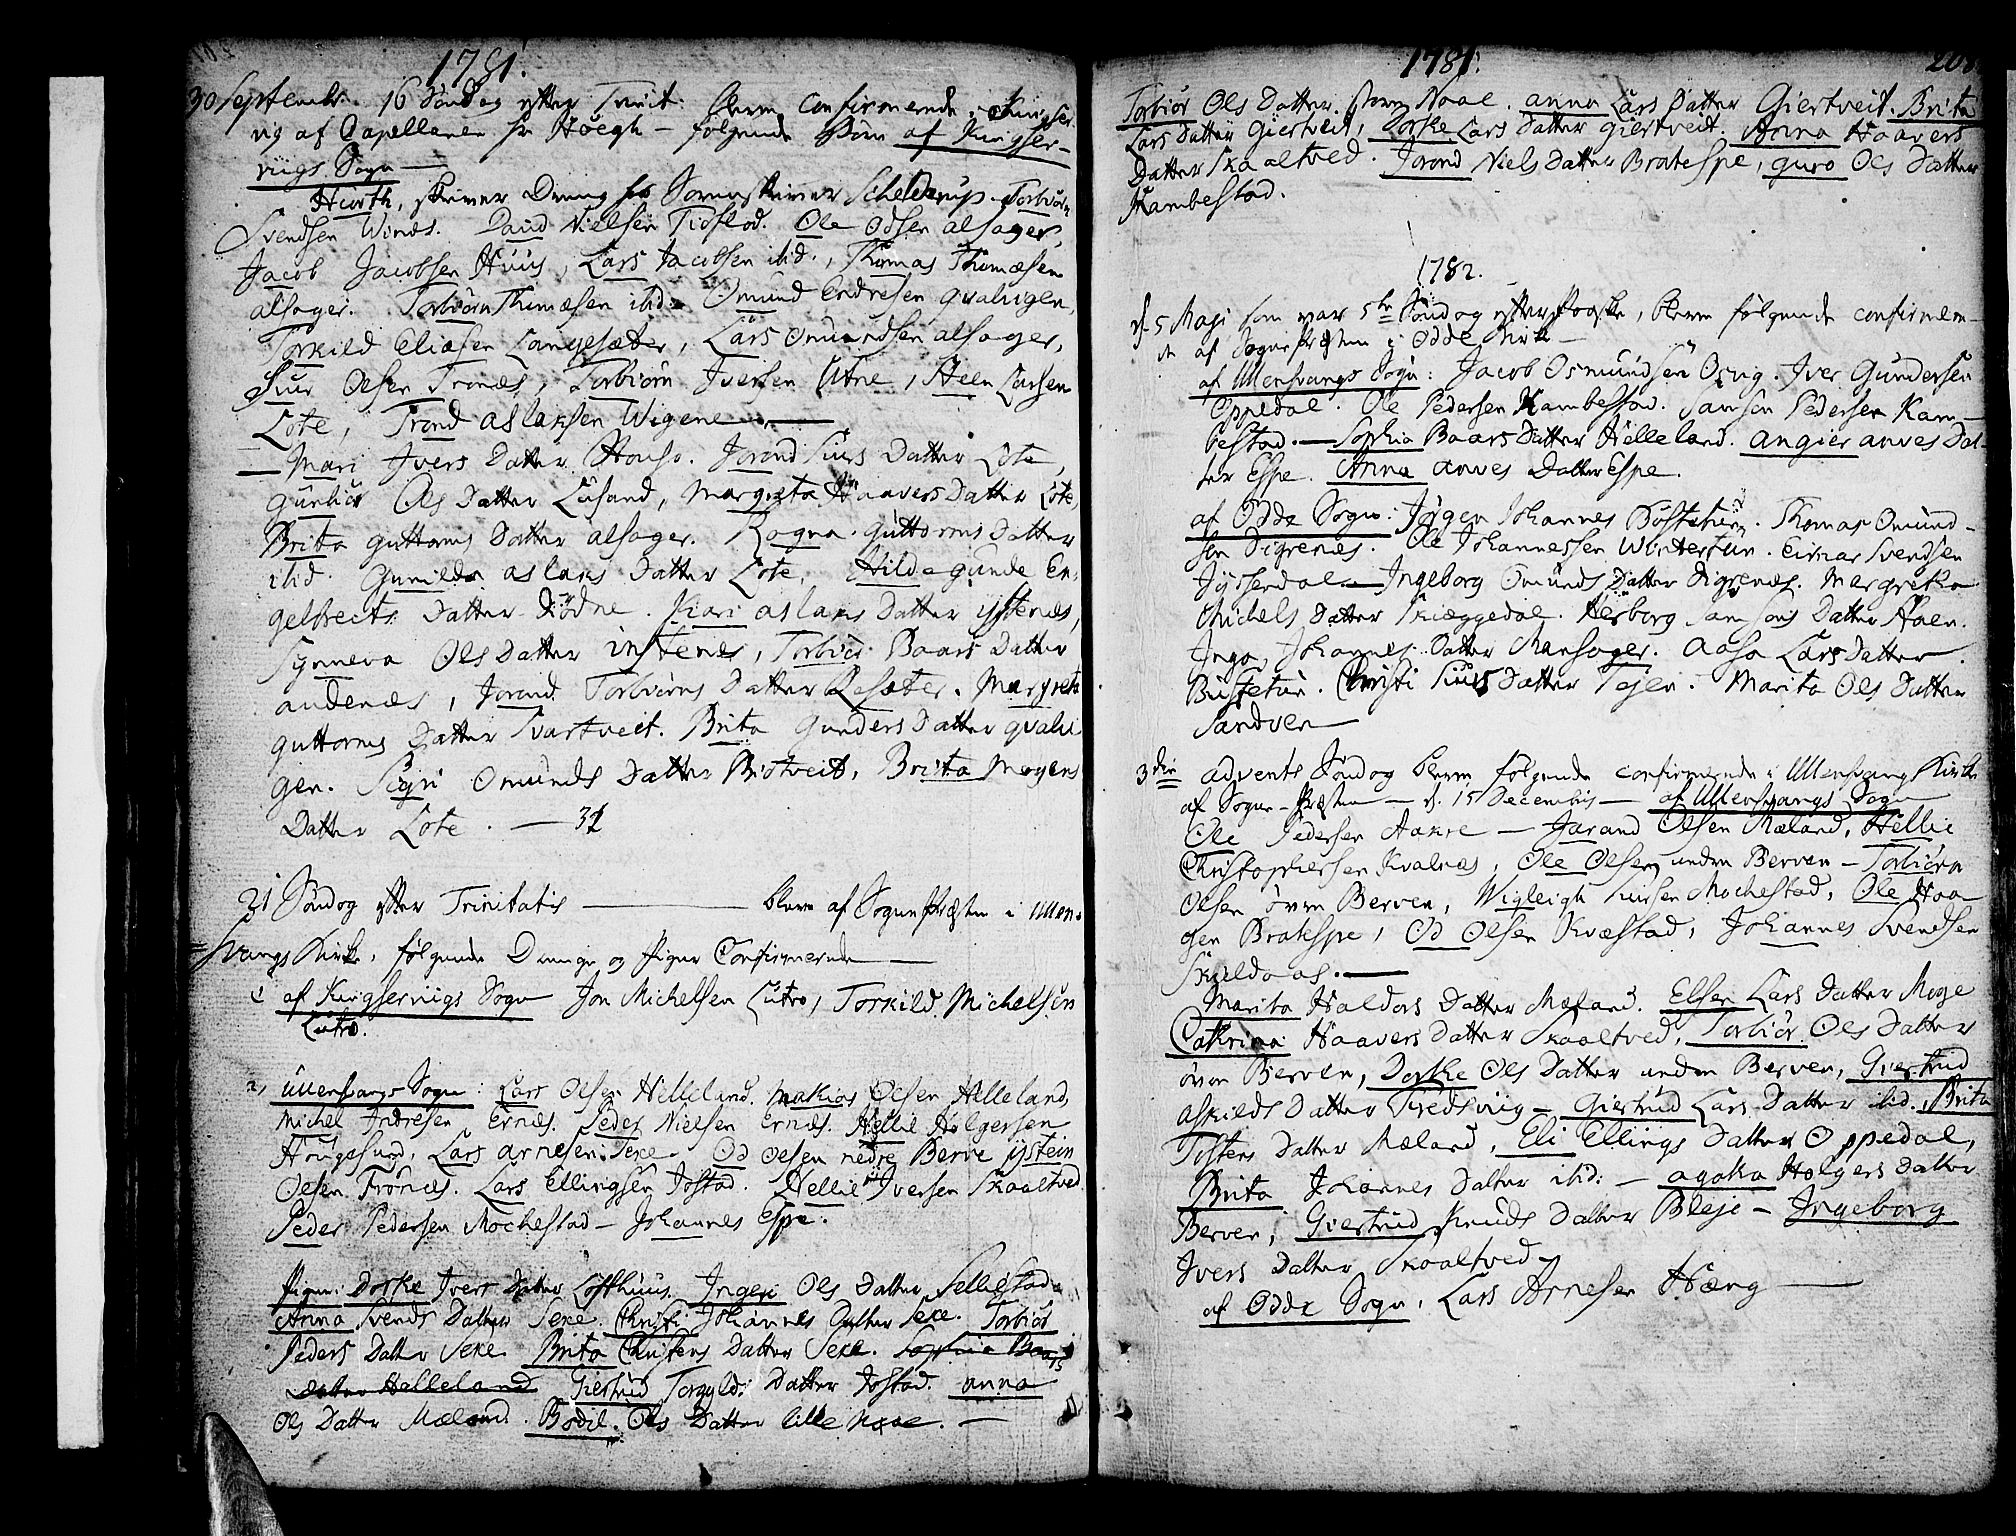 1781.
30 Septembr. 16 Søndag efter Trinit: blev confirmerede i Kingser
vig af Capellanen Hr Høegh - følgende Børn af Kingser-
viigs Sogn
Hiorth, skriver Dreng hos Sorenskriver Schelderup. Torbiørn
Svendsen Winæs. David Nielsen Tidflod. Ole Odsen alsager,
Jacob Jacobsen Huus, Lars Jacobsen ibid., Thomas Thomæsen
alsager. Torbiørn Thomæsen ibid. Omund Endresen qvalvigen,
Torkild Eliasen Langesæter, Lars Omundsen alsager,
Siur Olsen Tronæs, Torbiørn Iversen Utne, Steen Larsen
Lote, Trond aslaksen Wigene
Mari Ivers Datter Housо. Jorand Siurs Datter Lote,
gunbiør Ols Datter Lusand, Margreta Haavers Datter Lote,
Brita guttorms Datter alsager. Ragna guttorms Datter
ibid. Gunilda aslaks Datter Lote, Hildegunde En-
gelbrects Datter Diødne. Kari aslaks Datter ystenæs,
Synneva Ols Datter instenes, Torbiør Baars Datter
audenæs, Jorand Torbiørns Datter Resæter. Margreta
guttorms Datter Svartveit. Brita Gunders Datter qvalvi
gen. Sigri Omunds Datter Bistveit, Brita Mogens
Datter Lote. - 31
21 Søndag efter Trinitatis - blev af Sognepræsten i Ullen-
svangs Kirke, følgende Drenge og Piger Confirmerede
1 af Kingserviigs Sogn Jon Michelsen Lutro, Torkild Michelsen
Lutro.
2, Ullensvangs Sogn: Lars Olsen Helleland. Makias Olsen Helleland,
Michel Andresen Ernæs. Peder Nielsen Ernæs. Hellie Holgersen
Hougesund, Lars Arnesen Sexe. Od Olsen nedre Berve ystein
Olsen Frønæs. Lars Ellingsen Jostad. Hellie Iversen Skaaltved.
Peder Pedersen Mochestad - Johannes Espe.
Piger: Dorke Ivers Datter Lofthuus. Ingeri Ols Datter Sellestad
Anna Svends Datter Sexe. Christi Johannes Datter Sexe. Torbiør
Peders Datter Sexe Brita Christens Datter Sexe. Sophia Baars
Datter Helleland Giertrud Torgylds Datter Jostad. anna
Ols Datter Mæland. Bodil Ols Datter lille Naae.
1781.
208
Torbiør Ols Datter store Naae. anna Lars Datter Giertveit. Brita
Lars Datter Giertveit, Dorke Lars Datter giertveit. Anna Haavers
Datter Skaaltved. Jorand Niels Datter Bratespe, guro Ols Datter
Kambestad.
1782.
d. 5 Maji som var 5te Søndag efter Paaske, blev følgende confirme-
de af Sognepræsten i Odde Kirke
af Ullensvangs Sogn: Jacob Osmundsen Osvig. Iver Gundersen
Oppedal. Ole Pedersen Kambestad. Samson Pedersen Kam-
bestad. - Sophia Baars Datter Helleland. angier anves Dat-
ter Espe. Anna anves Datter Espe.
af Odde Sogn: Jørgen Johannes Bustetun. Thomas Omund-
sen Digrenæs. Ole Johannessen Wintertun. Einar Svendsen
Jysserdal - Ingeborg Omunds Datter Digrenæs. Margreta
Michels Datter Skieggedal. Herborg Samsons Datter Hæen.
Inga Johannes Datter Mansager. Aasa Lars Datter
Bustetun. Christi Siurs Datter Tejen. Marita Ols Datter
Sandven
3die advents Søndag blev følgende confirmerede i Ullensvang Kirke
af Sogne-Præsten - d. 15 Decembris - af Ullensvangs Sogn
Ole Pedersen Aakre - Jarand Olsen Mæland, Hellie
Christophersen Kvalnæs, Ole Olsen nedre Berven - Torbiørn
Olsen øvre Berven, Wigleigh Siursen Mochestad, Ole Haa-
gen Bratespe, Od Olsen Kvæstad, Johannes Svendsen
Skieldaas.
Marita Haldors Datter Mæland. Elsen Lars Datter Mæge
Catrina Haavers Datter Skaaltved, Torbiør Ols Datter
øvre Berven, Dorke Ols Datter nedre Berven, Giertrud
askilds Datter Tredsviig - Giertrud Lars Datter ibid. Brita
Tostens Datter Mæland, Eli Ellings Datter Oppedal,
Brita Johannes Datter ibid: - agaka Holgers Datter
Berven, Giertrud Knuds Datter Bleje - Ingeborg
Ivers Datter Skaaltved
af Odde Sogn, Lars Arnesen Hæng